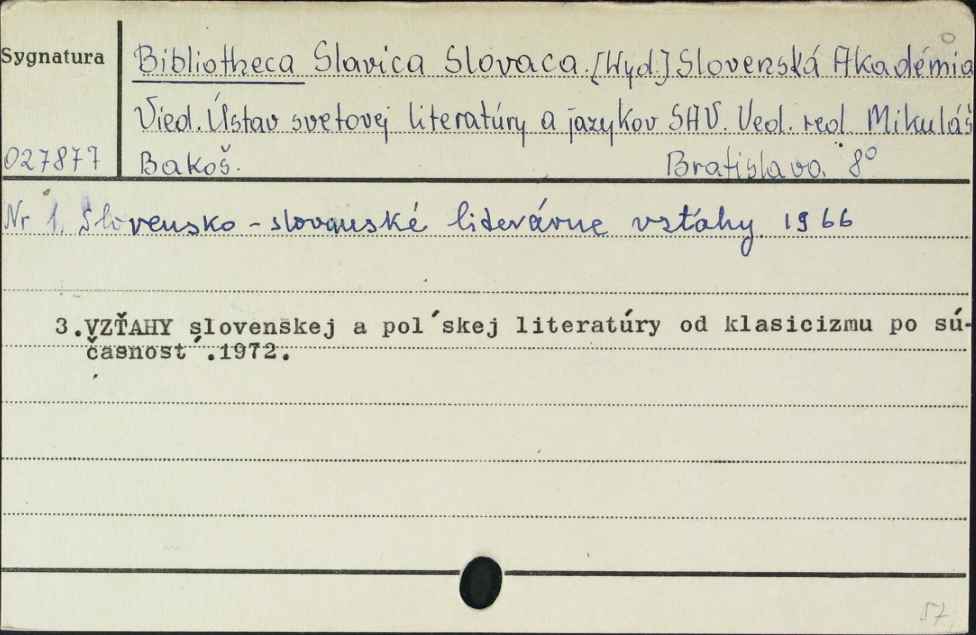 Sygnatura
Bibliotheca Slavica Slovaca. [Wyd.] Slovenská Akadémia
Vied. Ústav svetovej literatúry a jazykov SAV. Ved. red. Mikuláš
027877 Bakoš. Bratislava. 8°
Nr 1. Slovensko-slovanské literárne vzťahy 1966
3. VZŤAHY slovenskej a pol´skej literatúry od klasicizmu po sú-
časnost´.1972.
57.